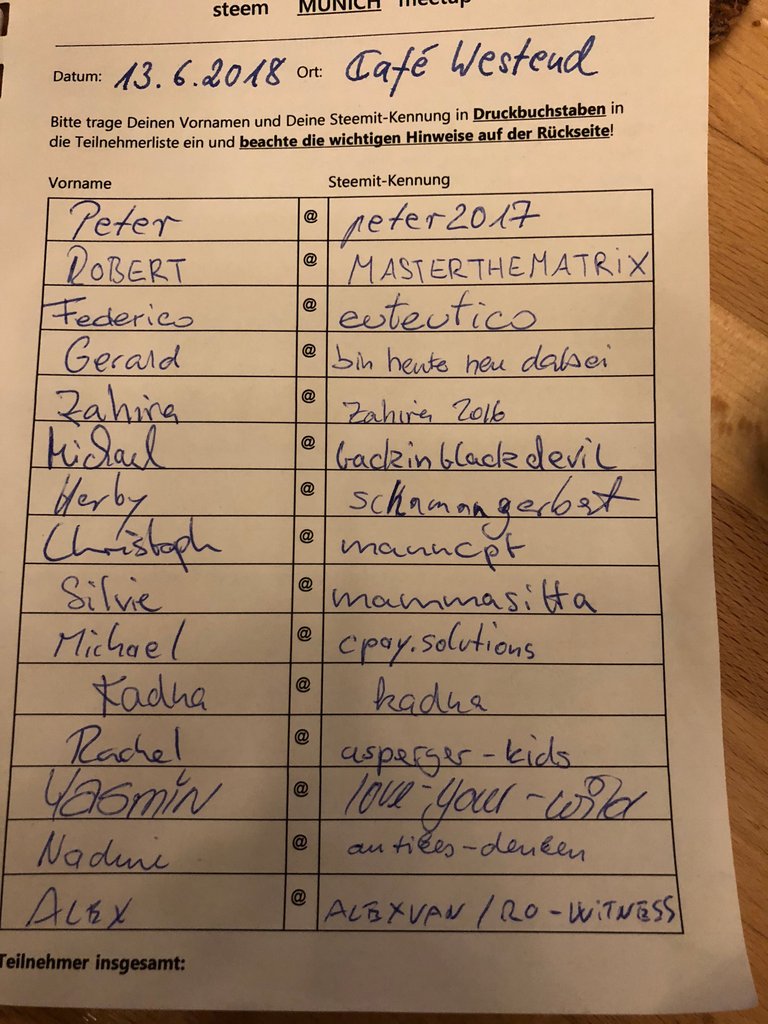 steem MUNICH meetup
Datum: 13.6.2018 Ort: Café Westend
Bitte trage Deinen Vornamen und Deine Steemit-Kennung in Druckbuchstaben in
die Teilnehmerliste ein und beachte die wichtigen Hinweise auf der Rückseite!
Vorname Steemit-Kennung
Peter @ peter2017
ROBERT @ MASTERTHEMATRiX
Federico @ euteutico
Gerald @ bin heute neu dabei
Zahira @ Zahira 2016
Michael @ backinblackdevil
Herby @ schamangerbert
Christoph @ manncpt
Silvie @ mammasitta
Michael @ cpay.solutions
Kadna @ kadna
Rachel @ asperger-kids
Yasmin @ love-your-wild
Nadine @ antikes-denken
ALEX @ ALEXVAN / RO-WiTNESS
Teilnehmer insgesamt: